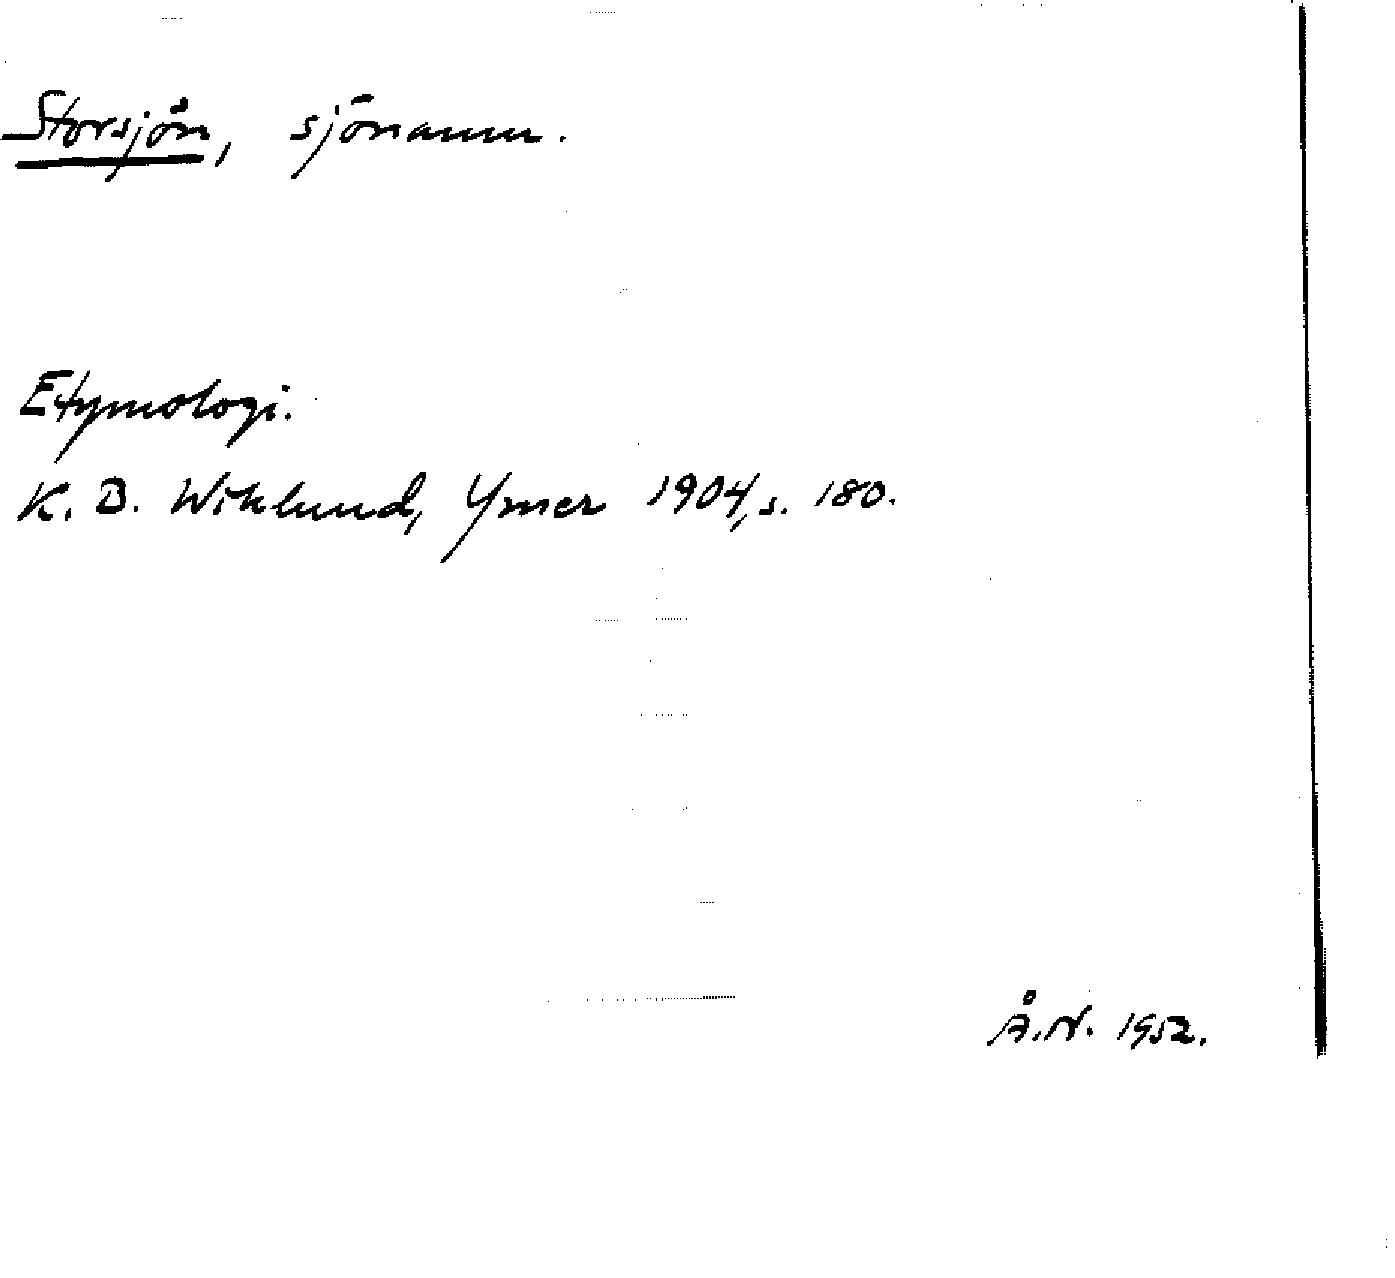 Storsjön, sjönamn.
Etymologi.
K. B. Wiklund, Ymer 1904, s. 180.
Å.N. 1952.